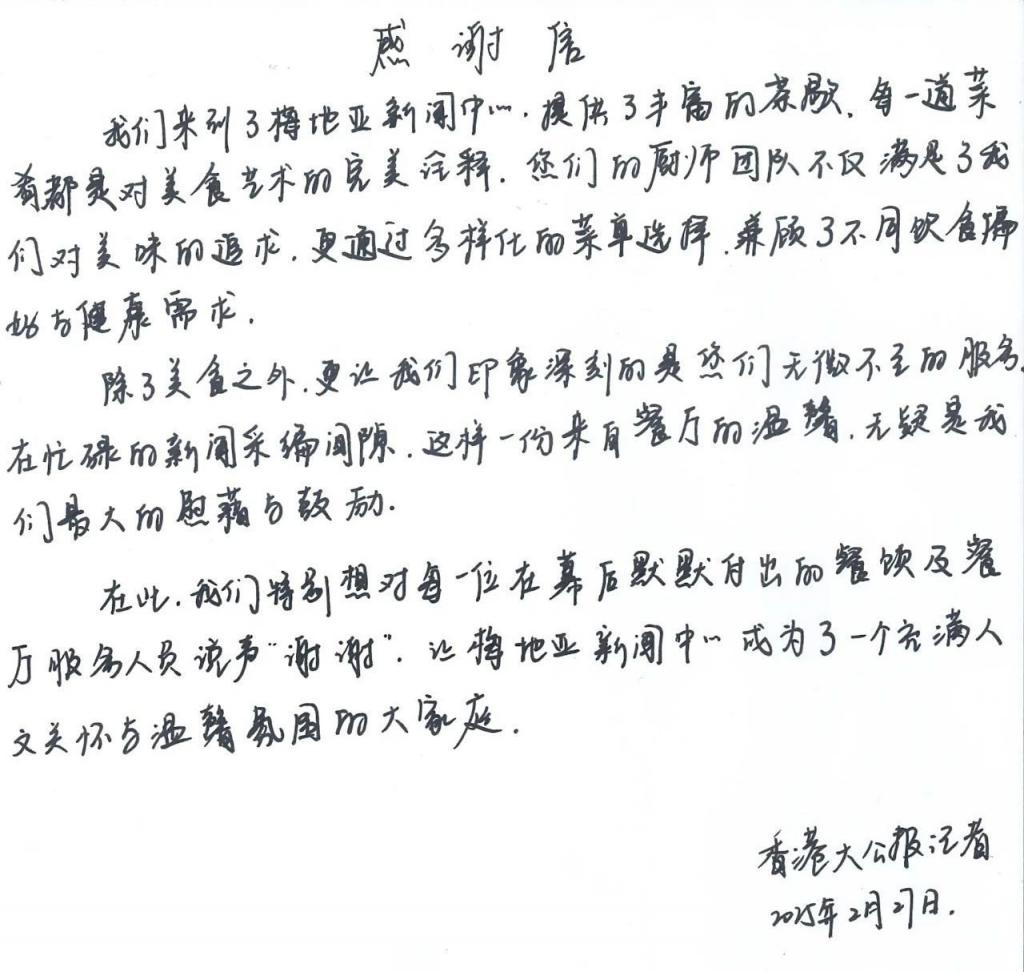 感谢信
我们来到了梅地亚新闻中心，提供了丰富的茶歇，每一道菜
肴都是对美食艺术的完美诠释，您们的厨师团队不仅满足了我
们对美味的追求，更通过多样化的菜单选择，兼顾了不同饮食偏
好与健康需求.
除了美食之外，更让我们印象深刻的是您们无微不至的服务.
在忙碌的新闻采编间隙，这样一份来自餐厅的温馨，无疑是我
们最大的慰藉与鼓励.
在此，我们特别想对每一位在幕后默默付出的餐饮及餐
厅服务人员说声“谢谢”. 让梅地亚新闻中心成为了一个充满人
文关怀与温馨氛围的大家庭.
香港大公报记者
2025年2月27日.